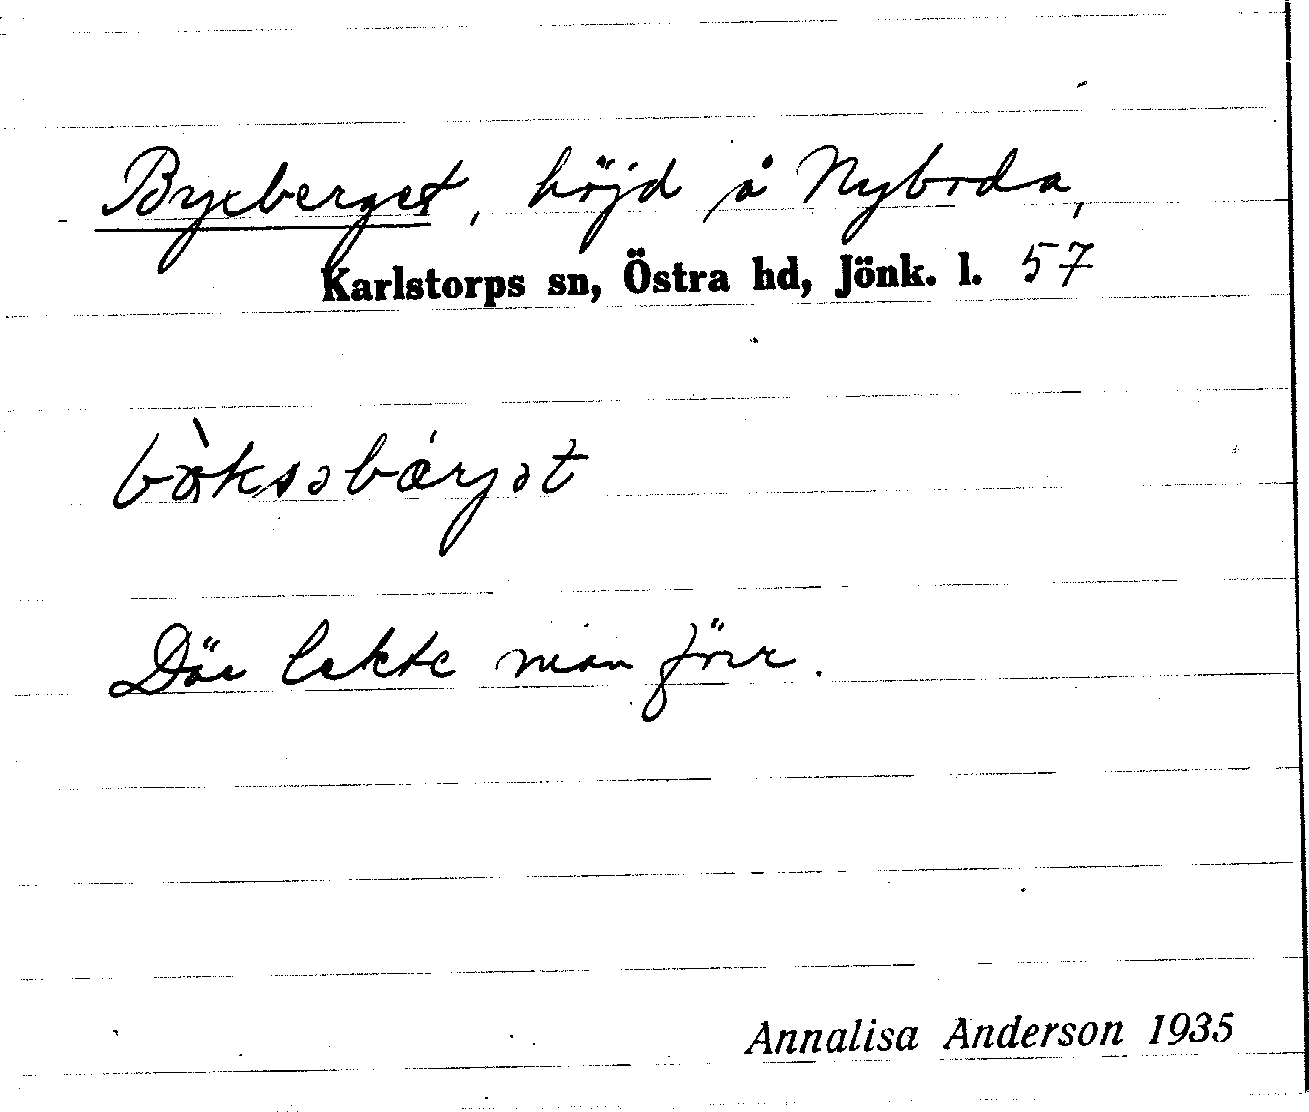 Byxberget, höjd å Nyboda,
Karlstorps sn, Östra hd, Jönk. l. 57
Där lekte man förr.
Annalisa Anderson 1935